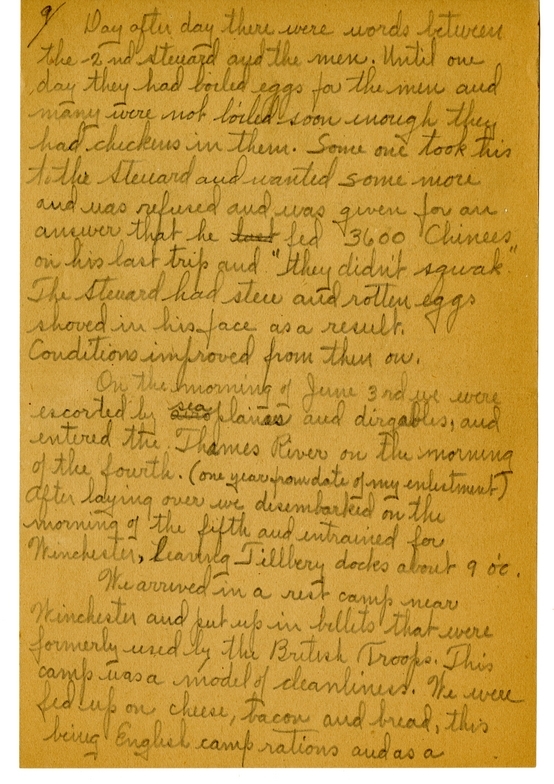 9/ Day after day there were words between
the 2nd steward and the men. Until one
day they had boiled eggs for the men and
many were not boiled soon enough they
had chickens in them. Some one took this
to the steward and wanted some more
and was refused and was given for an
answer that he last fed 3600 Chinees
on his last trip and "they didn't squak."
The steward had stew and rotten eggs
shoved in his face as a result.
Conditions improved from then on.
On the morning of June 3rd we were
sea
escorted by planes and dirgables, and
entered the Thames River on the morning
of the fourth. (one year from date of my enlistment)
After laying over we disembarked on the
morning of the fifth and entrained for
Winchester, leaving Tillbery docks about 9 oc.
We arrived in a rest camp near
Winchester and put up in billets that were
formerly used by the British Troops. This
camp was a model of cleanliness. We were
fed up on cheese, bacon and bread, this
being English camp rations and as a